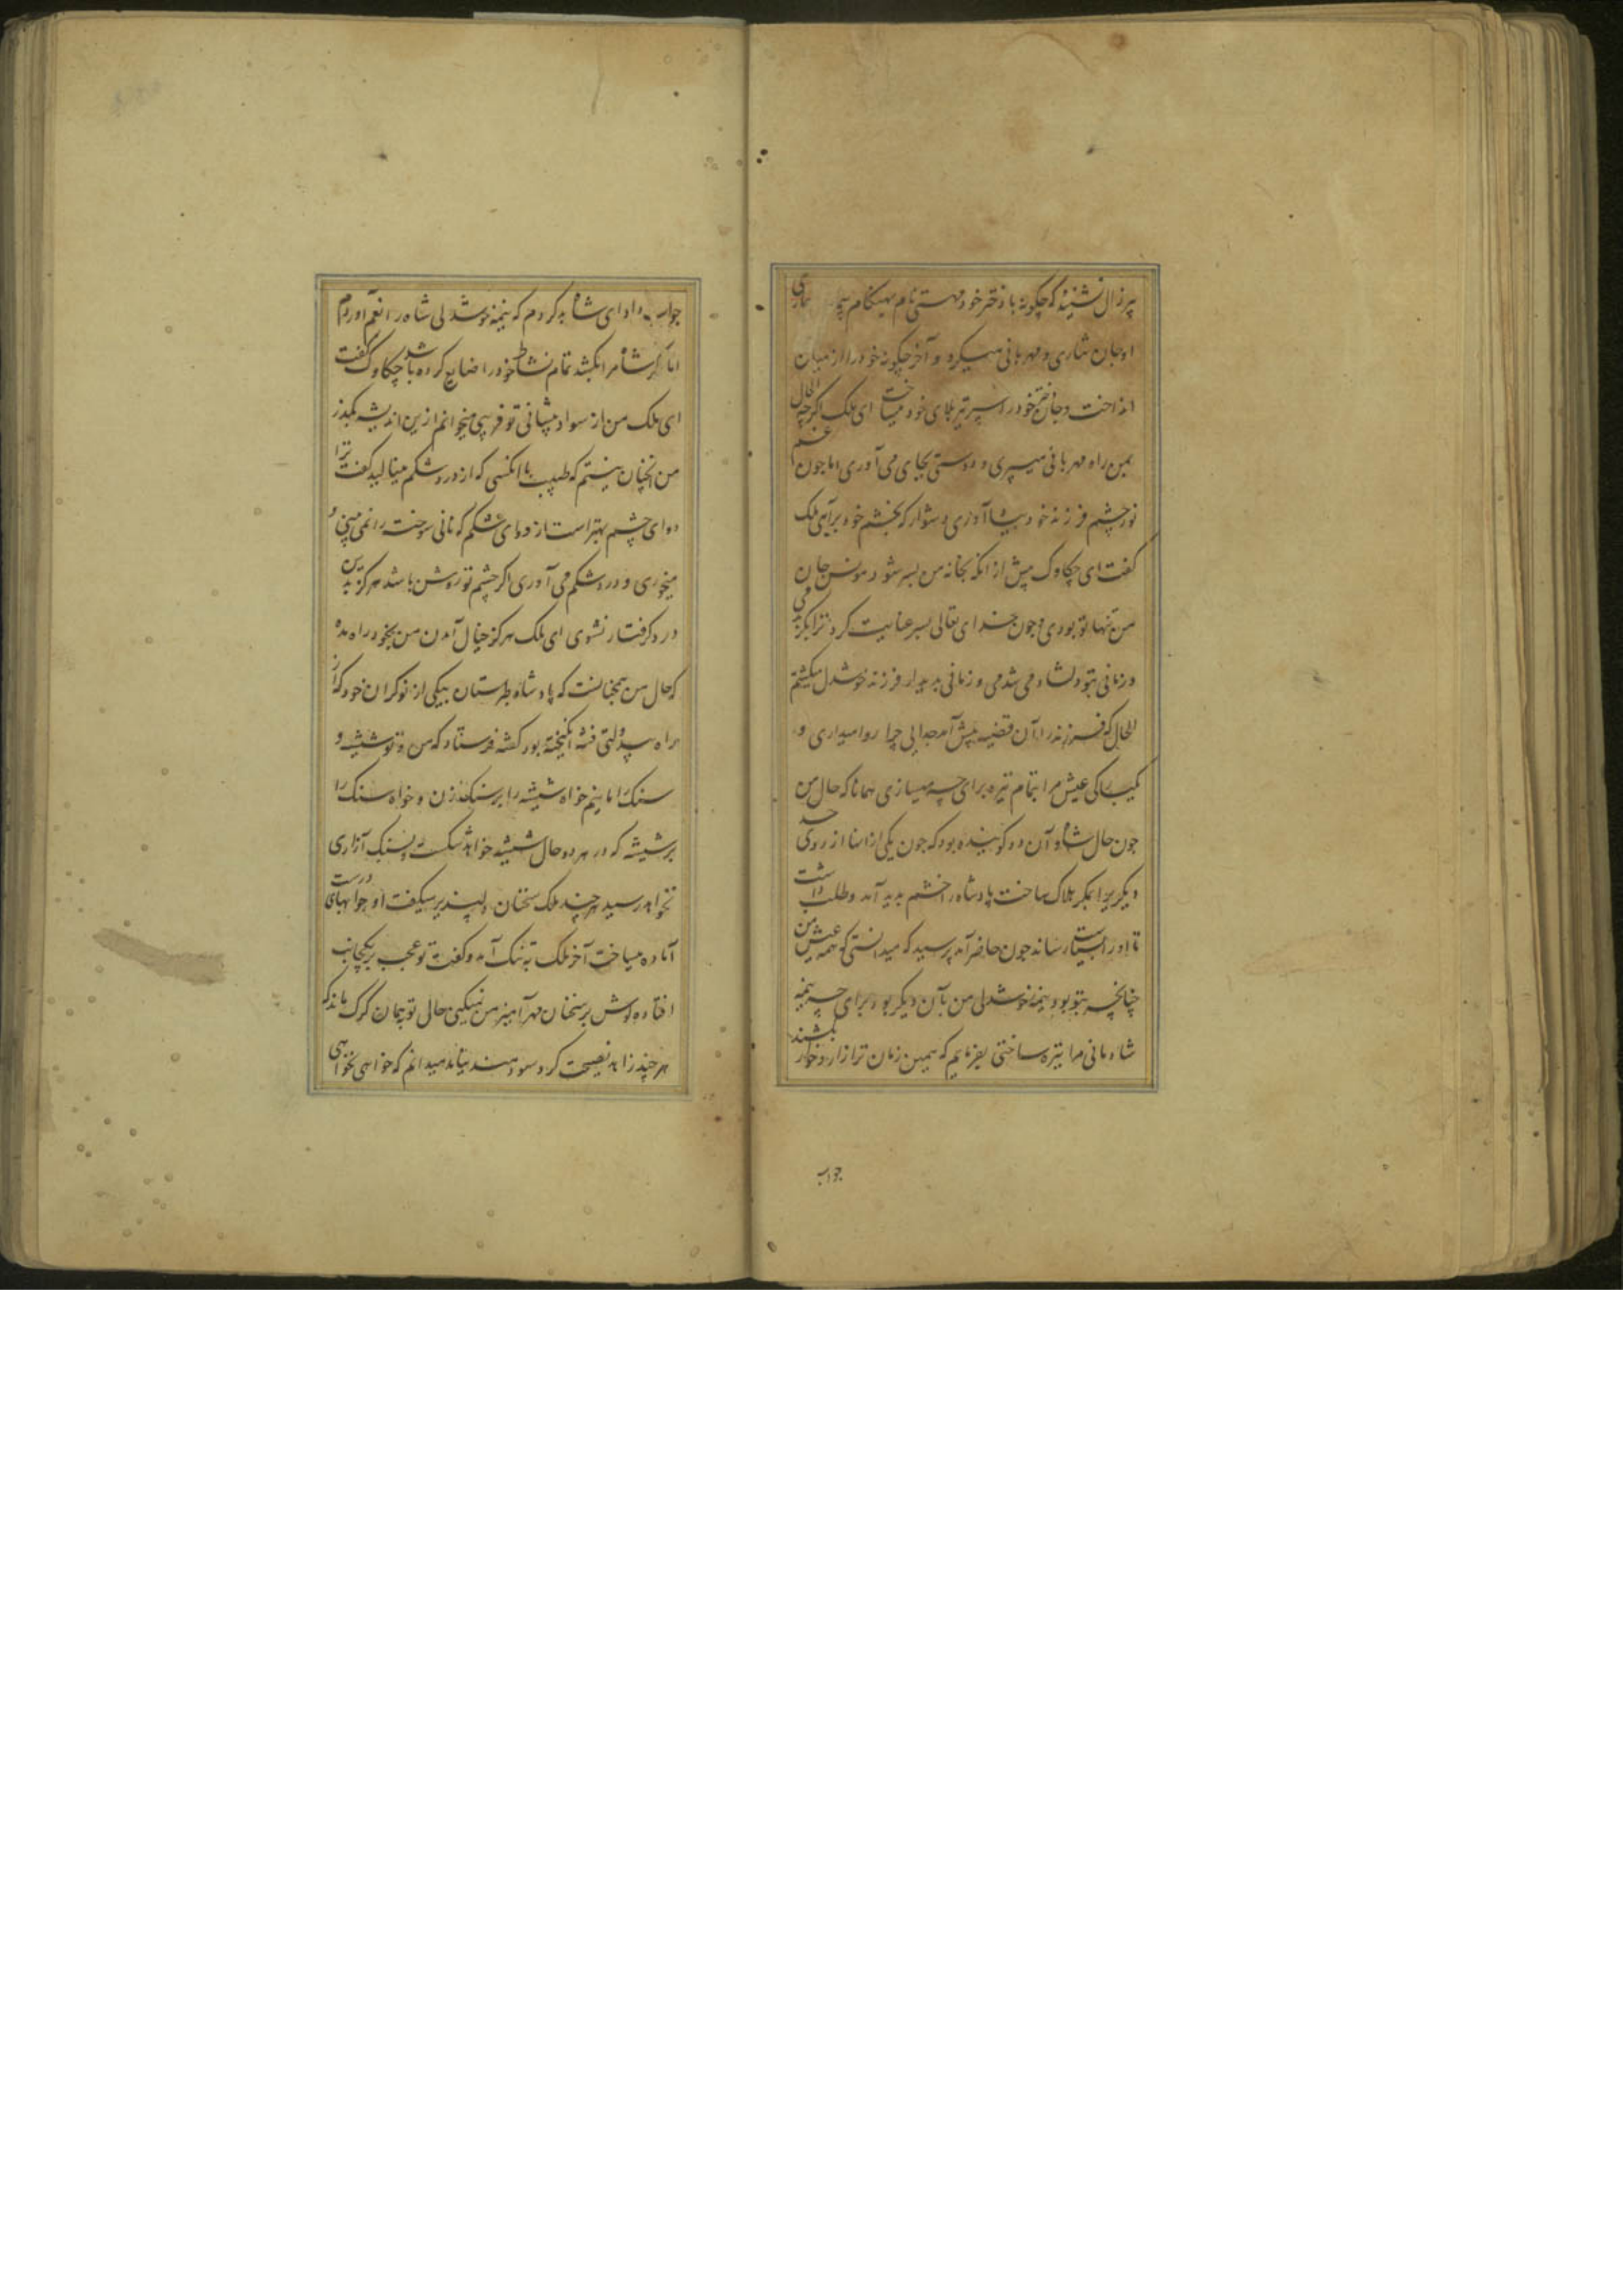 پیر زال نشنیدهٔ که چگونه با دختر خود مهستی نام بهنگام بیماری
او جان نثاری و مهربانی میکرد و آخر چگونه خود را از میان
انداخت و جان دختر خود را سپر تیر بلای خود میساخت ای ملک اگرچه الحال
بمن راه مهربانی میسپری و دوستی بجای می آوری اما چون غم
نور چشم فرزند خود بیاد آوری دشوار که بخشم خود برآیی ملک
کفت ای چکاوک پیش از آنکه بخانه من پسر شود مونس جان
من تنها تو بودی و چون خدای تعالی پسر عنایت کرد ترا
و زمانی بتو دلشاد می شدمی و زمانی بدیدار فرزند خوشدل میکشتم
الحال که فرزند را آن قضیه پیش آمد جدایی چرا روا میداری و
یکبارکی عیش مرا بتمام تیره برای چه میسازی همانا که حال من
چون حال شاه و آن دو کوینده بود که چون یکی از آنها از روی حسد
دیکری را بمکر هلاک ساخت پادشاه را خشم پدید آمد و طلب داشت
تا او را بسیاست رساند چون حاضر آمد پرسید که میدانستی که همه عیش من
چنانچه بتو بود نیمه خوشدلی من بآن دیکر بود برای چه نیمه
شادمانی مرا تیره ساختی بفرمایم که همین زمان ترا زار و خوار بکشند
جواب
جواب داد ای شاه بد کردم که نیمه خوشدلی شاه را بغم آوردم
اما اکر شاه مرا بکشد تمام نشاط خود را ضایع کرده باشد چکاوک کفت
ای ملک من از سواد پیشانی تو فریبی میخوانم ازین اندیشه بکذر
من آنچنان نیستم که طبیب با آنکسی که از درد شکم مینالید کفت ترا
دوای چشم بهتر است از دوای شکم که نانی سوخته را نمی بینی و
میخوری و درد شکم می آوری اکر چشم تو روشن باشد هرکز بدین
درد کرفتار نشوی ای ملک هرکز خیال آمدن من بخود راه مده
که حال من همچنانست که پادشاه طبرستان بیکی از نوکران خود که از
راه بیدولتی فتنه انکیخته بود کشته فرستاد که من و تو شیشه و
سنک را مانیم خواه شیشه را بر سنک زن و خواه سنک را
بر شیشه که در هر دو حال شیشه خواهد شکست و بسنک آزاری
نخواهد رسید هر چند ملک سخنان دلپذیر میکفت او جوابهای درست
آماده میساخت آخر ملک به تنک آمد و کفت تو عجب بر یکجانب
افتادهٔ کوش بر سخنان مهرآمیز من نمیکنی حال تو بهمان کرک ماند که
هر چند زاهد نصیحت کرد سودمند نیامد میدانم که خواهی نخواهی